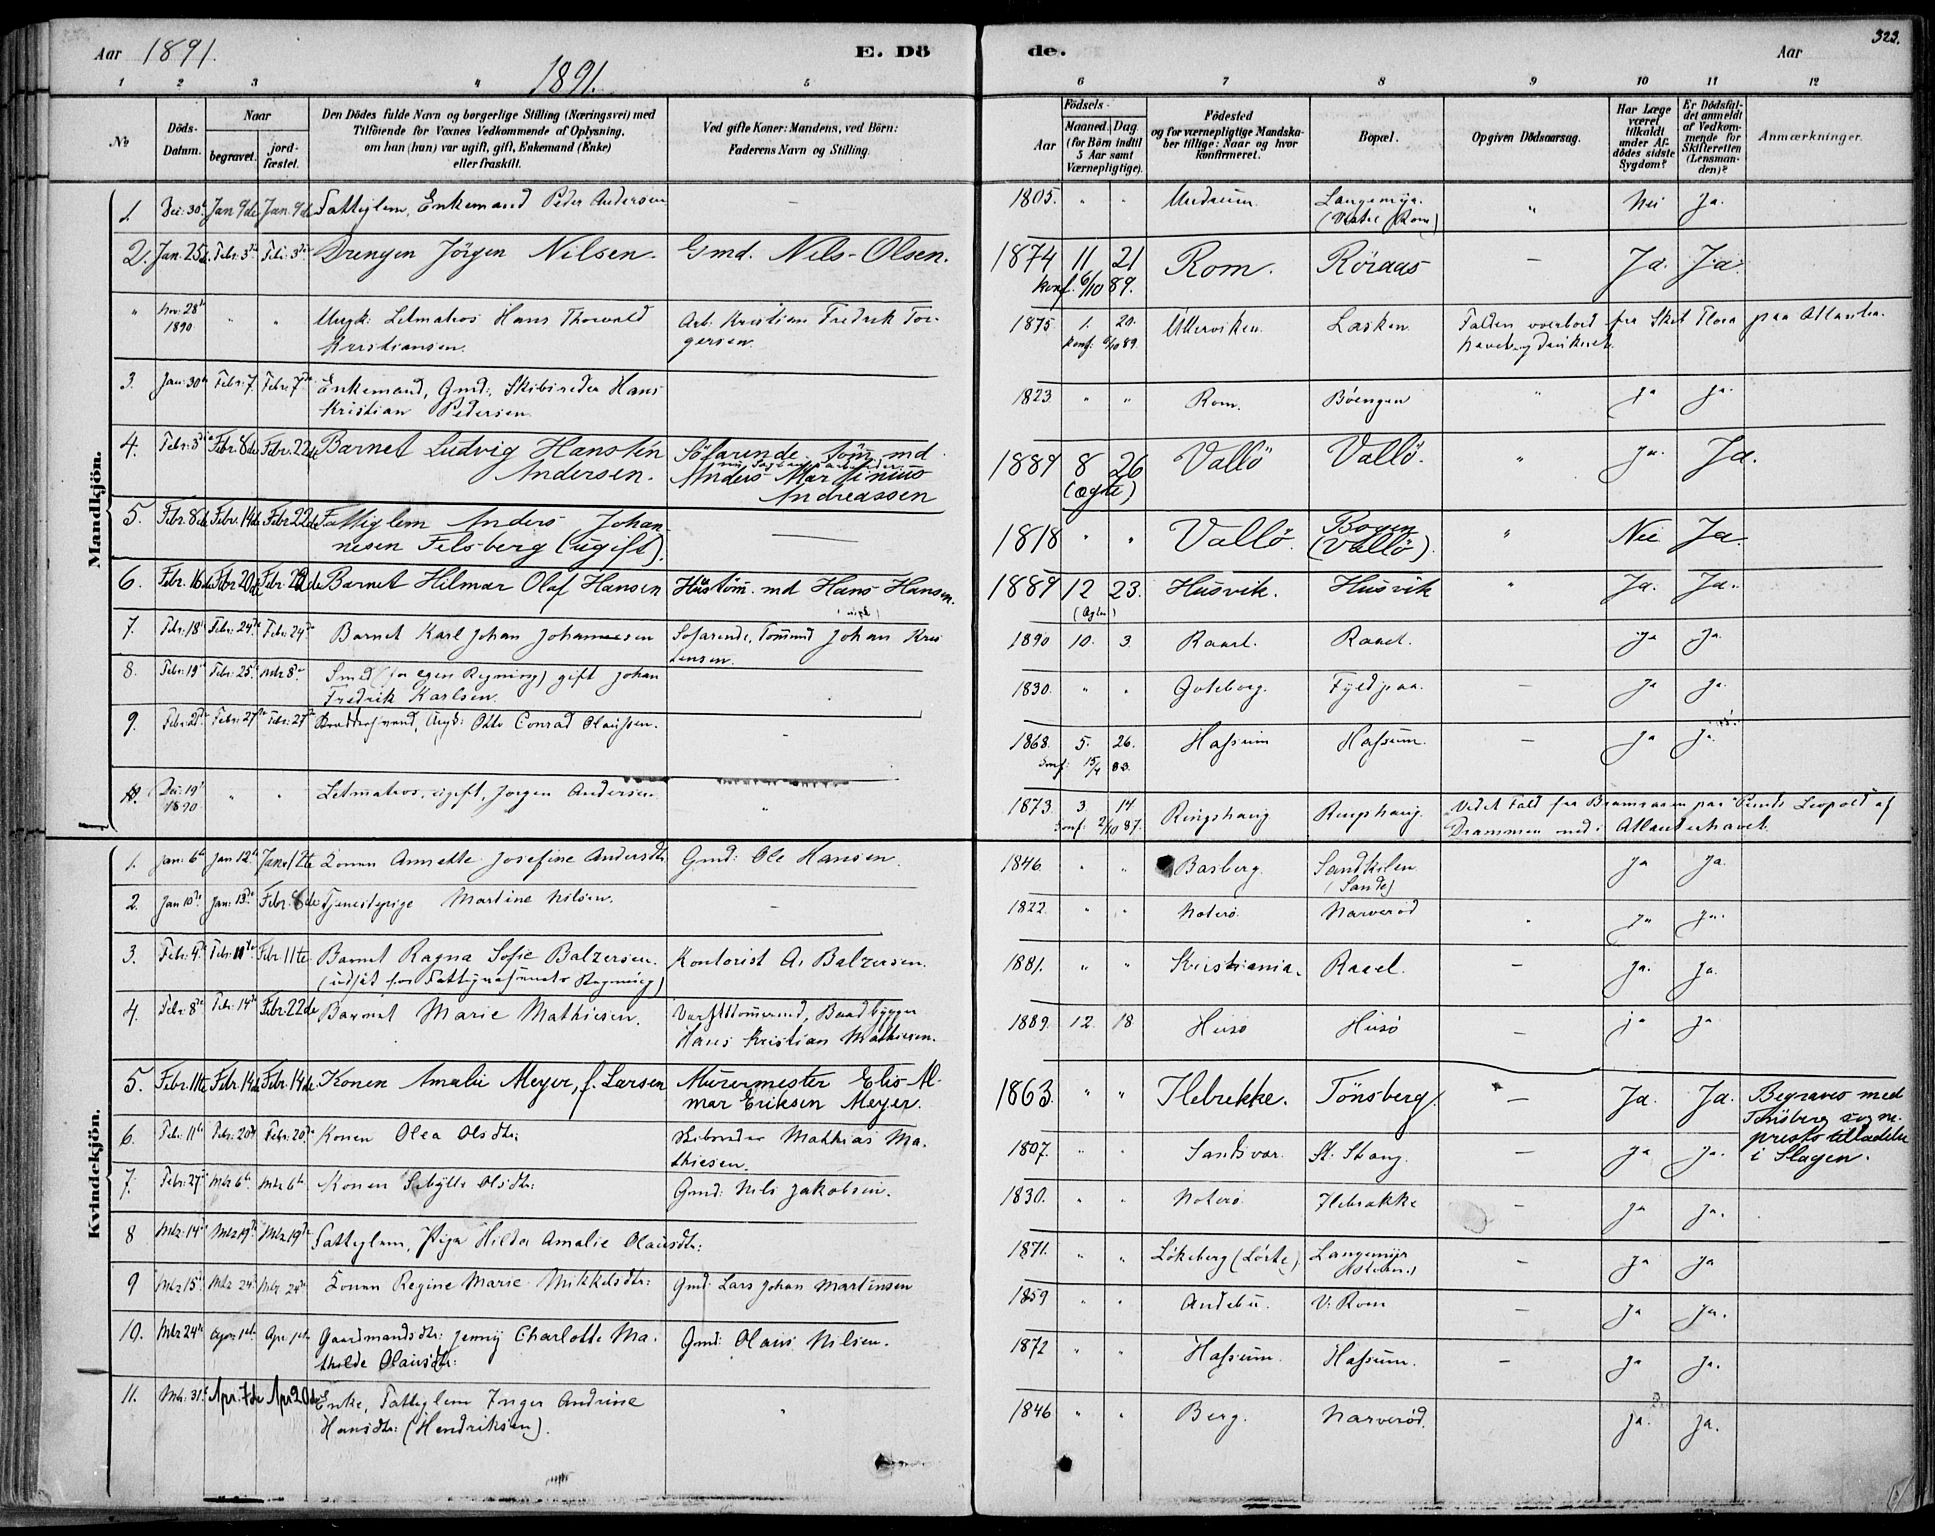 Aar 1891. E. Dö de. Aar 323.
1891.
1 2 3 4 5 6 7 8 9 10 11 12
№ Döds-Datum. Naar begravet. jord-fæstet. Den Dödes fulde Navn og borgerlige Stilling (Næringsvei) med Tilföiende for Voxnes Vedkommende af Oplysning, om han (hun) var ugift, gift, Enkemand (Enke) eller fraskilt. Ved gifte Koner: Mandens, ved Börn: Faderens Navn og Stilling. Födsels- Aar Maaned. Dag (for Börn indtil 5 Aar samt Værnepligtige). Födested og for værnepligtige Mandskaber tillige: Naar og hvor konfirmeret. Bopæl. Opgiven Dödsaarsag. Har Læge været tilkaldt under Afdödes sidste Sygdom? Er Dödsfaldet anmeldt af Vedkommende for Skifteretten (Lensmanden)? Anmærkninger.
Mandkjön.
1. Dec: 30 Jan 9de Jan. 9de Fattiglem, Enkemand Peder Andersen — 1805. " " Undrum Langemyr. (Vestre Rom) " Nei Ja.
2. Jan. 25 Febr. 3die Feb: 3die Drengen Jörgen Nilsen. Gmd. Nils Olsen. 1874 11 21 Rom. Röraas — Ja. Ja.
konf. 6/10 89.
" Nov: 28 1890 " " Ungk: Letmatros Hans Thorvald Kristiansen. Arb: Kristian Fredrik Torgersen. 1875 1. 20. Ulleviken Lasken Falden overbord fra Skib Flora paa Atlanterhavet og druknet.
konf: 6/10 89.
3. Jan: 30 Febr: 7 Febr: 7de Enkemand, Gmd: Skibsreder Hans Kristian Pedersen. 1823 " " Rom. Böengen " Ja Ja.
4. Febr: 3die Febr 8de Febr. 22de Barnet Ludvig Hanstén Andersen. Söfarende, Töm̄md. Anders Martinius Andreassen 1889 8 26 (ægte) Vallö Vallö. " Ja. Ja.
5. Febr. 8de Febr. 14de Febr 22de Fattiglem Anders Johannesen Felsberg (ugift). — 1818 " " Vallö. Bogen (Vallö). " Nei Ja.
6. Febr. 16de Febr 20de Febr. 22de Barnet Hilmar Olaf Hansen Hustöm̄.md Hans Hansen. 1889 12 23. Husvik. Husvik " Ja. Ja.
7. Febr: 18 Febr: 24de Febr 24de Barnet Karl Johan Johannesen Söfarende, Töm̄md Johan Kristensen. 1890 10. 3. Raael. Raael. Ja Ja.
8. Febr: 19 Febr: 25 Mrz 8de Smed (for egen Regning) gift Johan Fredrik Karlsen. 1830. " " Göteborg. Fyldpaa. — Ja Ja.
9. Febr: 21 Febr: 27de Febr: 27de Otto Conrad Olaussen. — 1868. 5. 26. Hassum Hassum. — Ja Ja.
konf: 15/4 83.
10. Dec: 19 1890 " " Letmatros, ugift, Jörgen Andersen " 1873 3. 14 Ringshaug Ringshaug. Ved et Fald fra Bramraaen paa Leopold af Drammen ned i Atlanterhavet.
konf: 2/10 87.
Kvindekjön.
1. Jan: 6te Jan 12te Jan. 12te Konen Annette Josefine Andersdtr Gmd: Ole Hansen. 1846 " " Basberg. Sandkilen (Sande) Ja Ja.
2. Jan 10de Jan: 13de Febr. 8de Tjenestepige Martine Nilsen. — 1822 " " Noterö Narveröd " Ja Ja.
3. Febr: 4de Febr. 10de Febr. 11te Barnet Ragna Sofie Balzersen. (udsat for Fattigvæsenets Regning) Kontorist A. Balzersen. 1881. " " Kristiania. Raael. — Ja. Ja.
4. Febr: 8de Febr. 14de Febr. 22de Barnet Marie Mathiesen. Værftstömmermd, Baadbygger Hans Kristian Mathiesen. 1889. 12. 18 Husö Husö — Ja Ja.
5. Febr. 11te Febr. 14de Febr. 14de Konen Amalie Meyer, f. Larsen Murermester Elis Almar Eriksen Meyer. 1863. " " Ilebrekke. Tönsberg. — Ja. Ja. Begraves med Tönsberg sogneprests tilladelse i Slagen.
6. Feb: 11te Febr: 20de Febr. 20de Konen Olea Olsdtr: Skibsreder Mathias Mathiesen. 1807. " " Sandsvær. St. Stang. — Ja Ja.
7. Febr: 27 Mrz 6te Mrz 6te Konen Sibylle Olsdtr: Gmd: Nils Jakobsen. 1830. " " Noterö Ilebrække — Ja Ja.
8 Mrz: 14 Mrz 19de Mrz 19de Fattiglem, Pige Hilda Amalie Olausdtr: 1871. " " Lökeberg Langemyr — Ja Ja
9 Mrz 15 Mrz 24 Mrz 24de Konen Regine Marie Mikkelsdtr: Gmd: Lars Johan Martinsen 1859 " " Andebu. V: Rom — Ja Ja.
10. Mrz 24de Apr: 1ste Apr. 1ste Gaardmandsdtr: Jenny Charlotte Mathilde Olausdtr: Gmd: Olaus Nilsen. 1872 " " Hassum. Hassum. — Ja Ja.
11. Mrz: 31 Apr. 7de Apr. 20de Enke, Fattiglem Inger Andrine Hansdtr: (Hendriksen). " 1846 " " Berg. Narveröd. Ja. Ja.